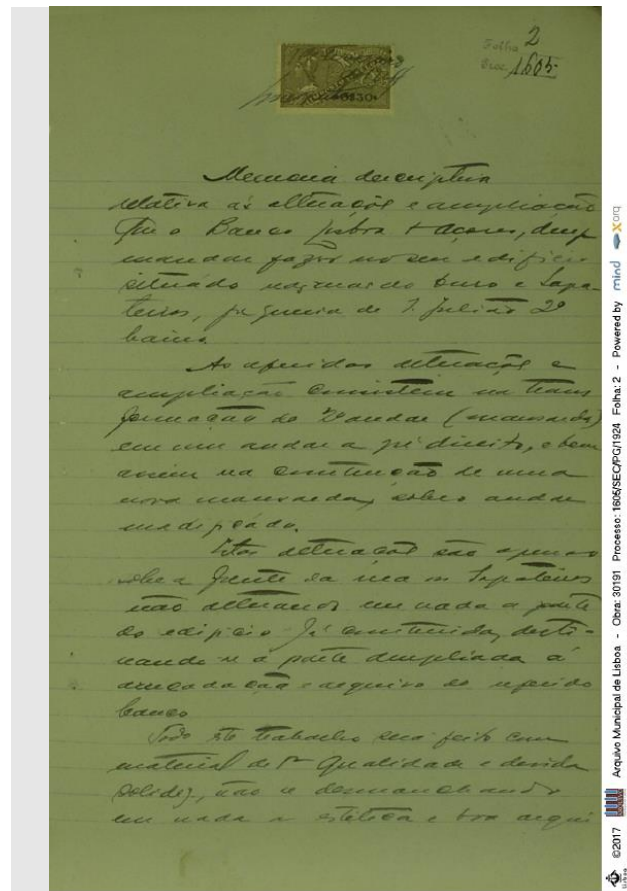 Folha 2
Proc. 1605
Memoria descriptiva
relativa ás alterações e ampliação
que o Banco Lisboa & Açores, deseja
mandar fazer no seu edificio
situado nas ruas do Ouro e Sapa-
teiros, freguesia de S. Julião 2º
bairro
As referidas alterações e
ampliação consistem na trans
formação do 2º andar (mansarda)
em um andar a pé direito, e bem
assim na construção de uma
nova mansarda, sobre andar
modificado.
Estas alterações são apenas
sobre a frente da rua os Sapateiros
não alterando em nada a parte
do edificio já construida, desti-
nando-se a parte ampliada á
arrecadação e arquivo do referido
banco
Todo este trabalho será feito com
material de 1ª qualidade e devida
solidez, não se desmanchando
em nada a estetica e boa arqui
©2017 Arquivo Municipal de Lisboa - Obra: 30191 Processo: 1606/SEC/PG/1924 Folha: 2 - Powered by mind Xarq